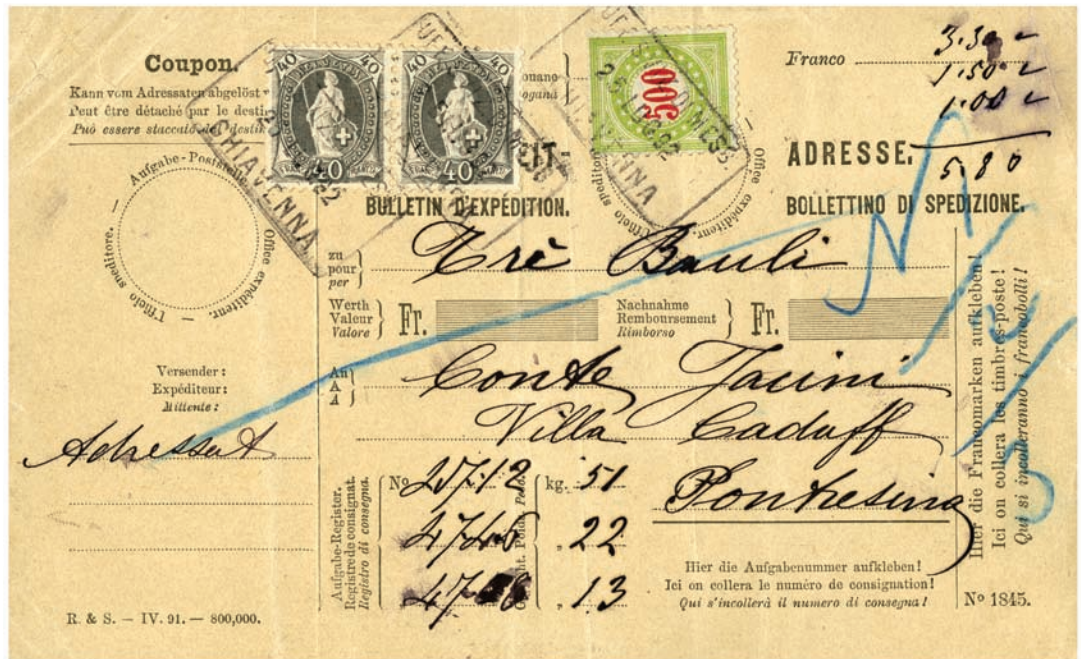 Coupon.
Kann vom Adressaten abgelöst
Peut être détaché par le desti
Può essere staccato dal destin
Aufgabe-Poststelle. — Office expéditeur. — Ufficio speditore. —
Versender:
Expéditeur:
Mittente:
Adressat
R. & S. — IV. 91. — 800,000.
40 40
40
40 40
40
CHIAVENNA
500
Office expéditeur. Ufficio speditore
Franco
3.30
1.50
1.00
5.80
EIT-
ADRESSE.
BULLETIN D'EXPÉDITION.
BOLLETTINO DI SPEDIZIONE.
zu
pour
per
Trè Bauli
Werth
Valeur
Valore
Fr.
Nachnahme
Remboursement
Rimborso
Fr.
An
A
A
Conte Jacini
Villa Caduff
Pontresina
Aufgabe-Register.
Registre de consignat.
Registro di consegna.
No
kg. 51
22
13
Hier die Aufgabenummer aufkleben!
Ici on collera le numéro de consignation!
Qui s'incollerà il numero di consegna!
Hier die Francomarken aufkleben!
Ici on collera les timbres-poste!
Qui si incolleranno i francobolli!
No 1845.